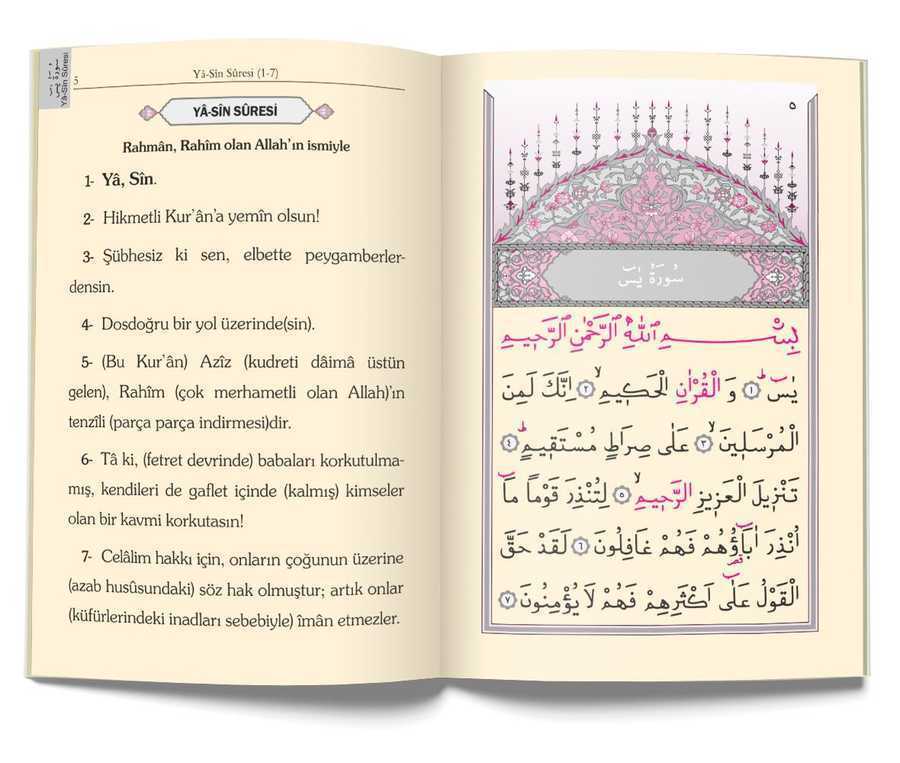 سورة يس
Yâ-Sîn Sûresi
5
Yâ-Sîn Sûresi (1-7)
YÂ-SÎN SÛRESİ
Rahmân, Rahîm olan Allah’ın ismiyle
1- Yâ, Sîn.
2- Hikmetli Kur’ân’a yemîn olsun!
3- Şübhesiz ki sen, elbette peygamberler-
densin.
4- Dosdoğru bir yol üzerinde(sin).
5- (Bu Kur’ân) Azîz (kudreti dâimâ üstün
gelen), Rahîm (çok merhametli olan Allah)’ın
tenzîli (parça parça indirmesi)dir.
6- Tâ ki, (fetret devrinde) babaları korkutulma-
mış, kendileri de gaflet içinde (kalmış) kimseler
olan bir kavmi korkutasın!
7- Celâlim hakkı için, onların çoğunun üzerine
(azab husûsundaki) söz hak olmuştur; artık onlar
(küfürlerindeki inadları sebebiyle) îmân etmezler.
٥
سُورَةُ يٰسٓ
بِسْمِ اللّٰهِ الرَّحْمٰنِ الرَّحٖيمِ
يٰسٓ ﴿١﴾ وَ الْقُرْاٰنِ الْحَكٖيمِ ﴿٢﴾ اِنَّكَ لَمِنَ
الْمُرْسَلٖينَ ﴿٣﴾ عَلٰى صِرَاطٍ مُسْتَقٖيمٍ ﴿٤﴾
تَنْزٖيلَ الْعَزٖيزِ الرَّحٖيمِ ﴿٥﴾ لِتُنْذِرَ قَوْمًا مَٓا
اُنْذِرَ اٰبَٓاؤُ۬هُمْ فَهُمْ غَافِلُونَ ﴿٦﴾ لَقَدْ حَقَّ
الْقَوْلُ عَلٰٓى اَكْثَرِهِمْ فَهُمْ لَا يُؤْمِنُونَ ﴿٧﴾